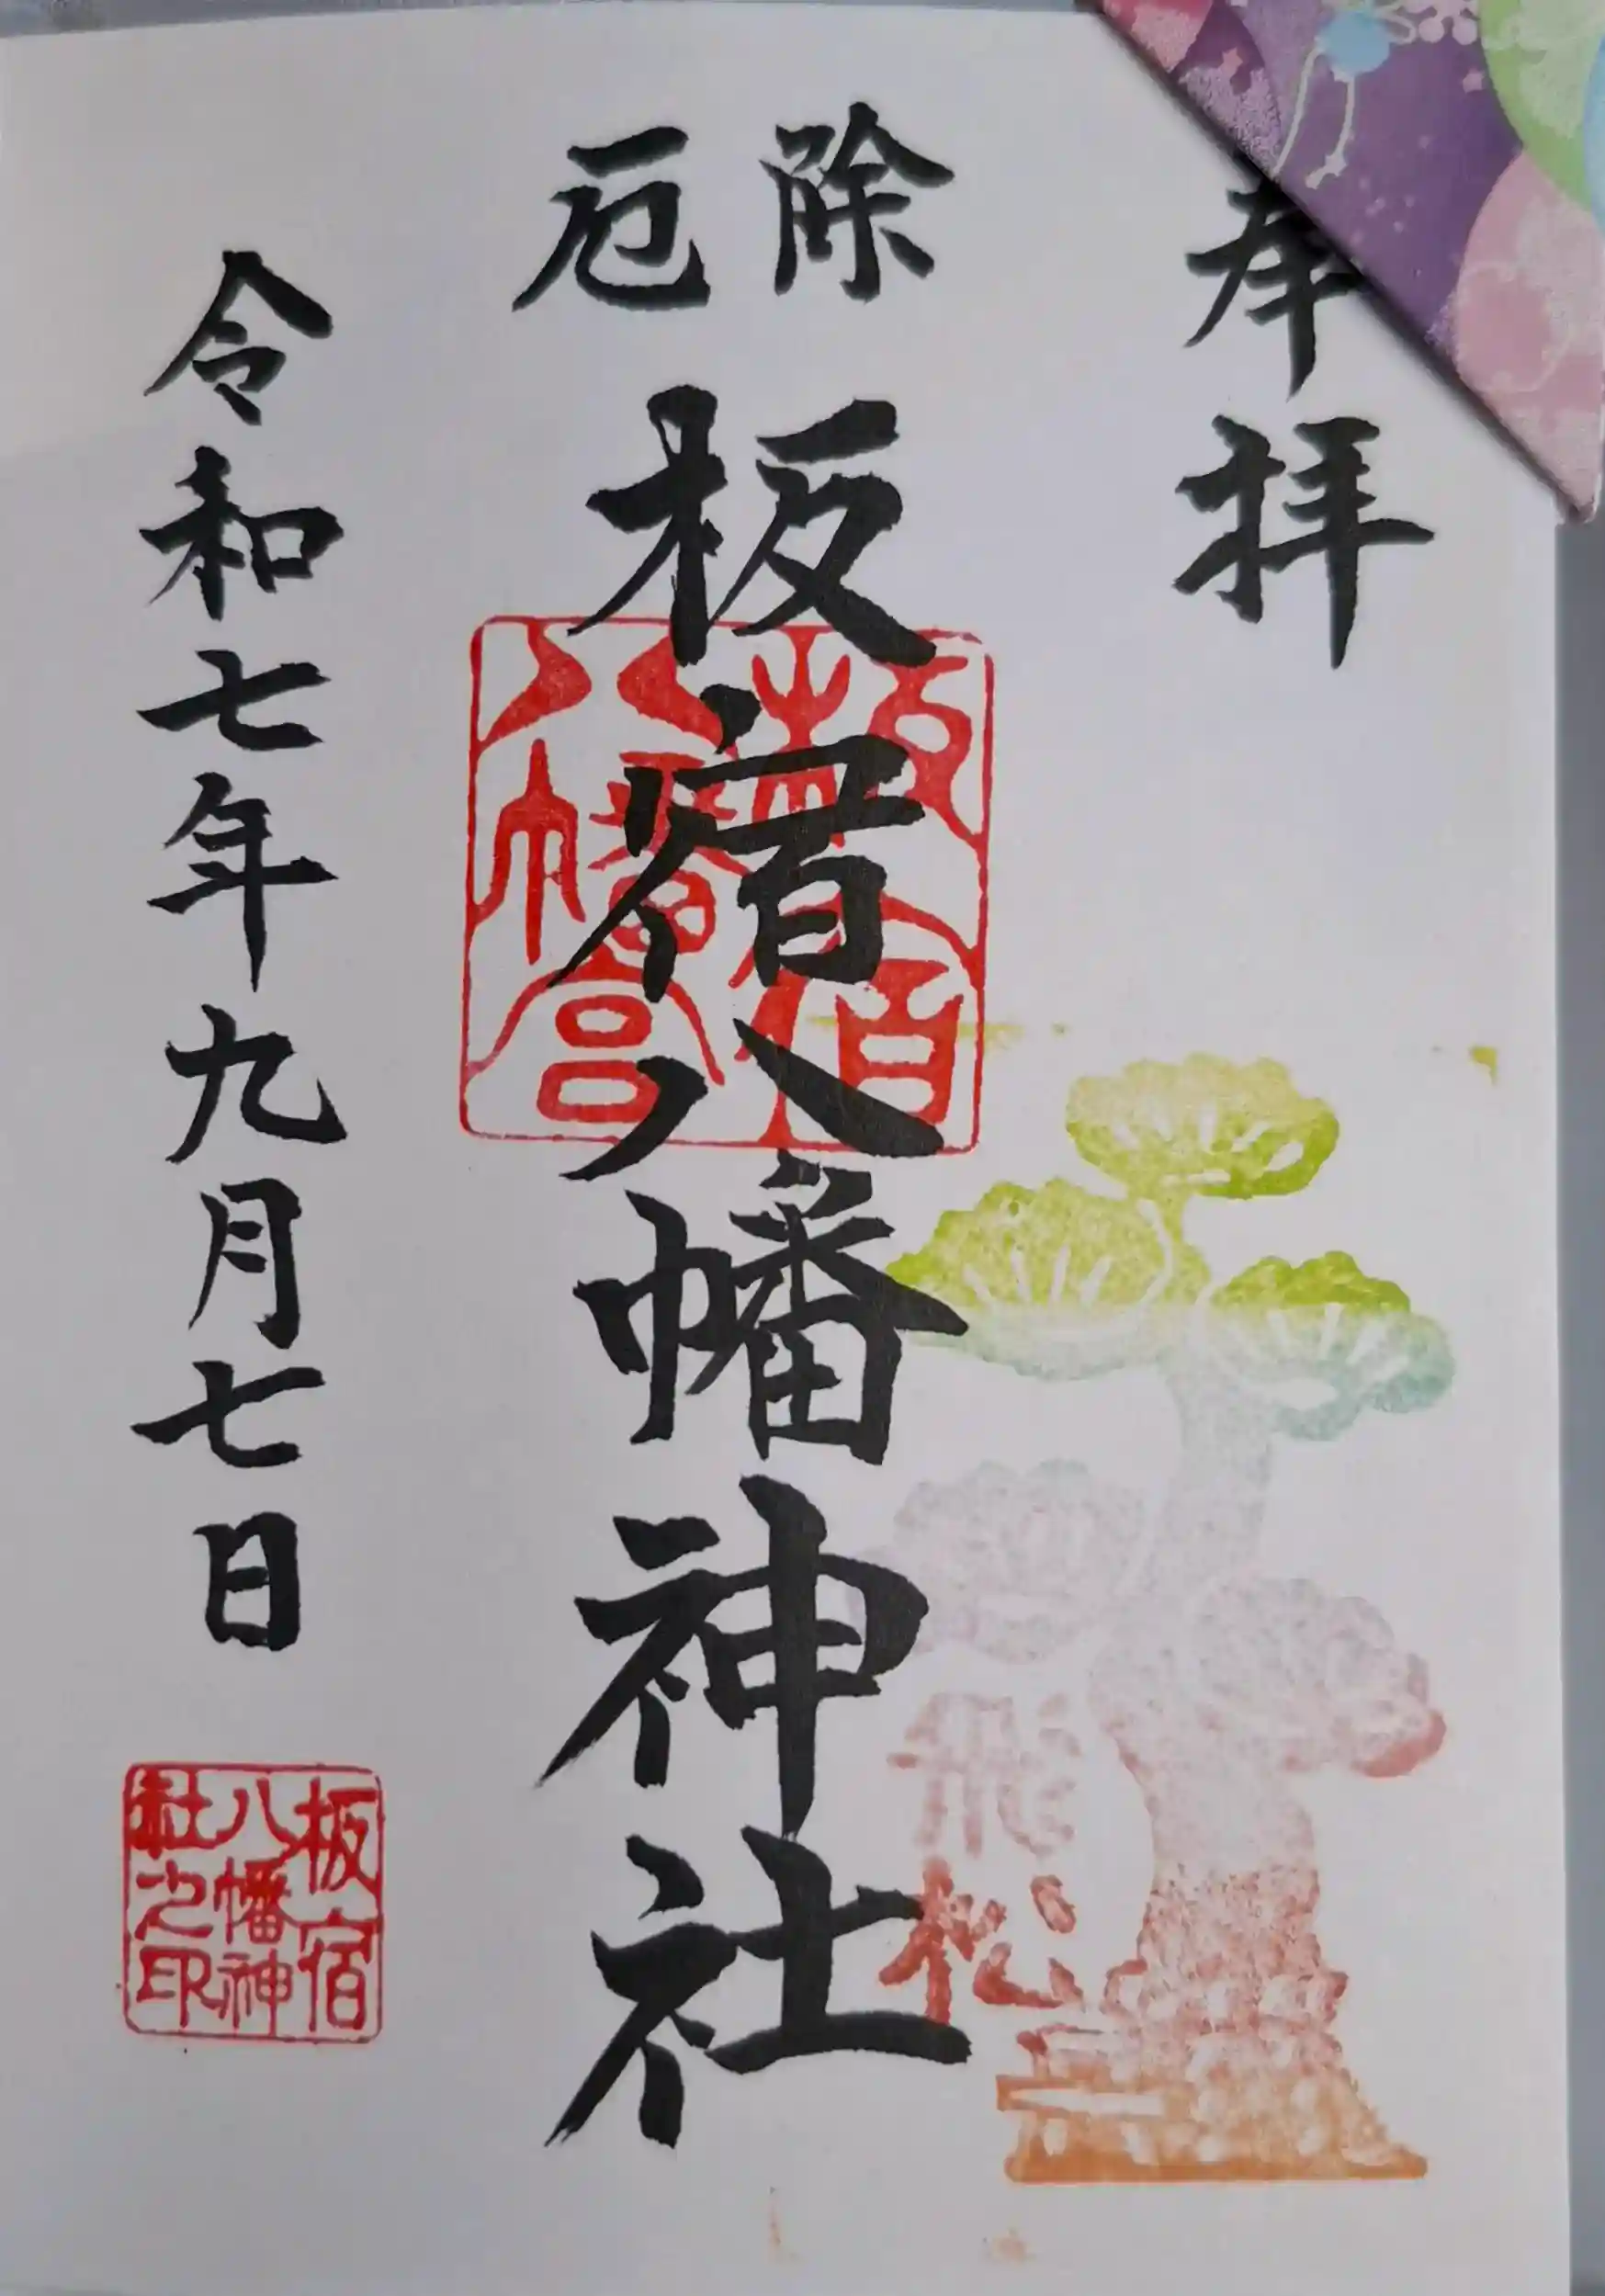 奉拝
除厄
板宿八幡神社
令和七年九月七日
板宿
八幡宮
飛松
板宿
八幡神
社之印